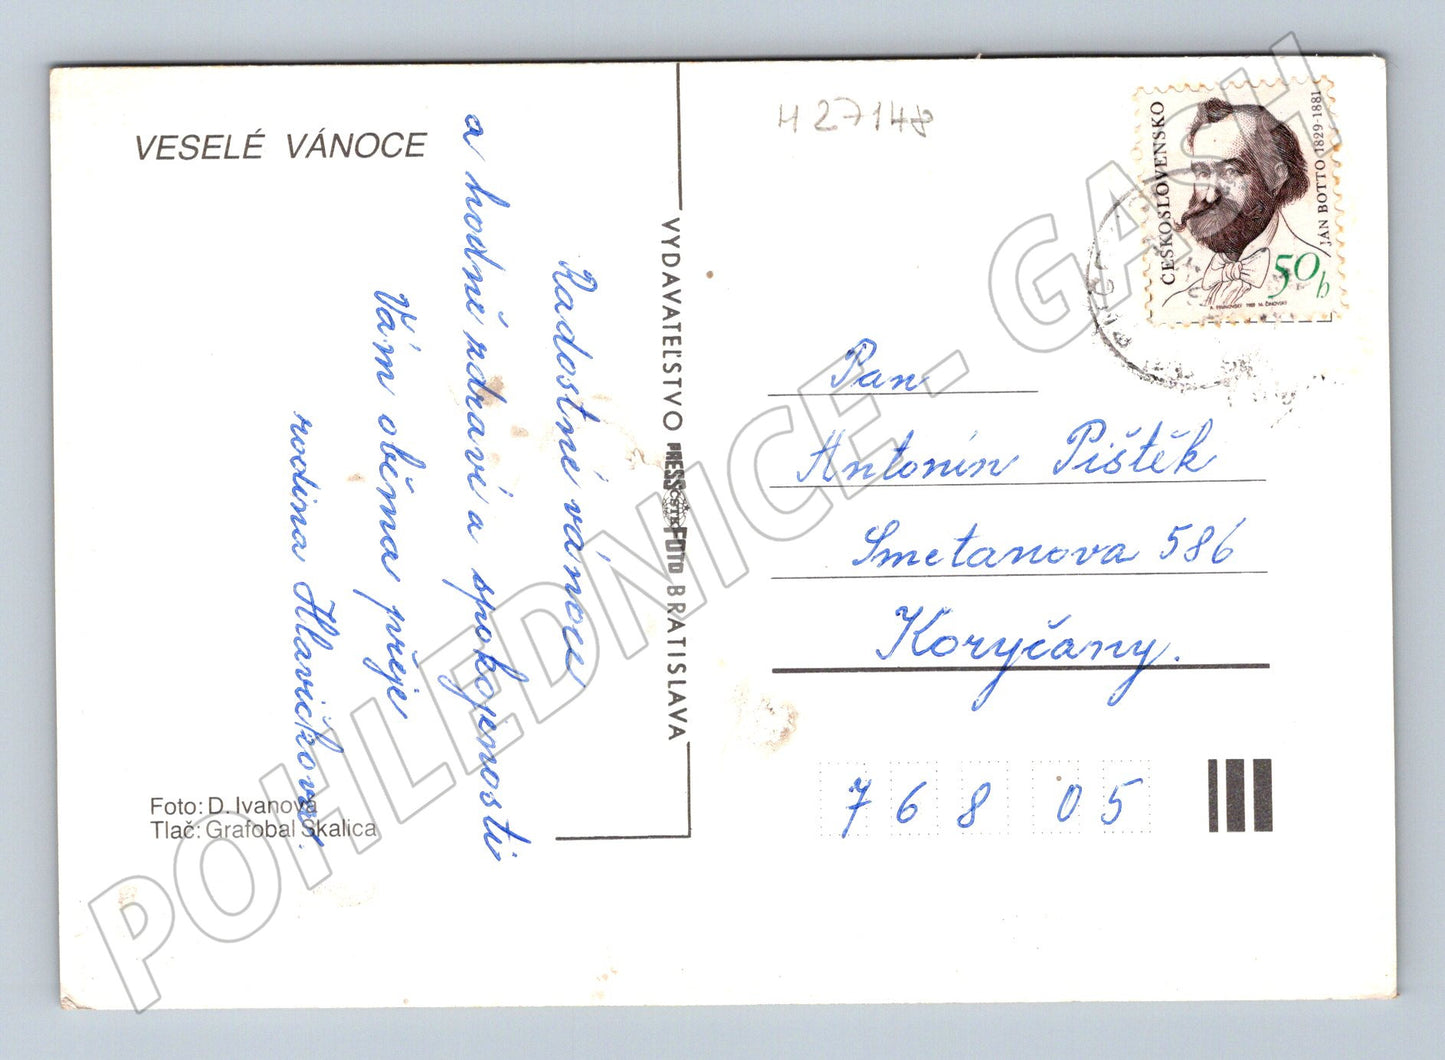 VESELÉ VÁNOCE
Radostné vánoce
a hodně zdraví a spokojenosti
Vám oběma přeje
rodina Hlavičkova.
Foto: D. Ivanová
Tlač: Grafobal Skalica
VYDAVATEĽSTVO PRESSFOTO BRATISLAVA
ČSTK
H 27148
ČESKOSLOVENSKO
JÁN BOTTO 1829-1881
50 h
Pan
Antonín Pištěk
Smetanova 586
Koryčany.
768 05
POHLEDNICE - GASH